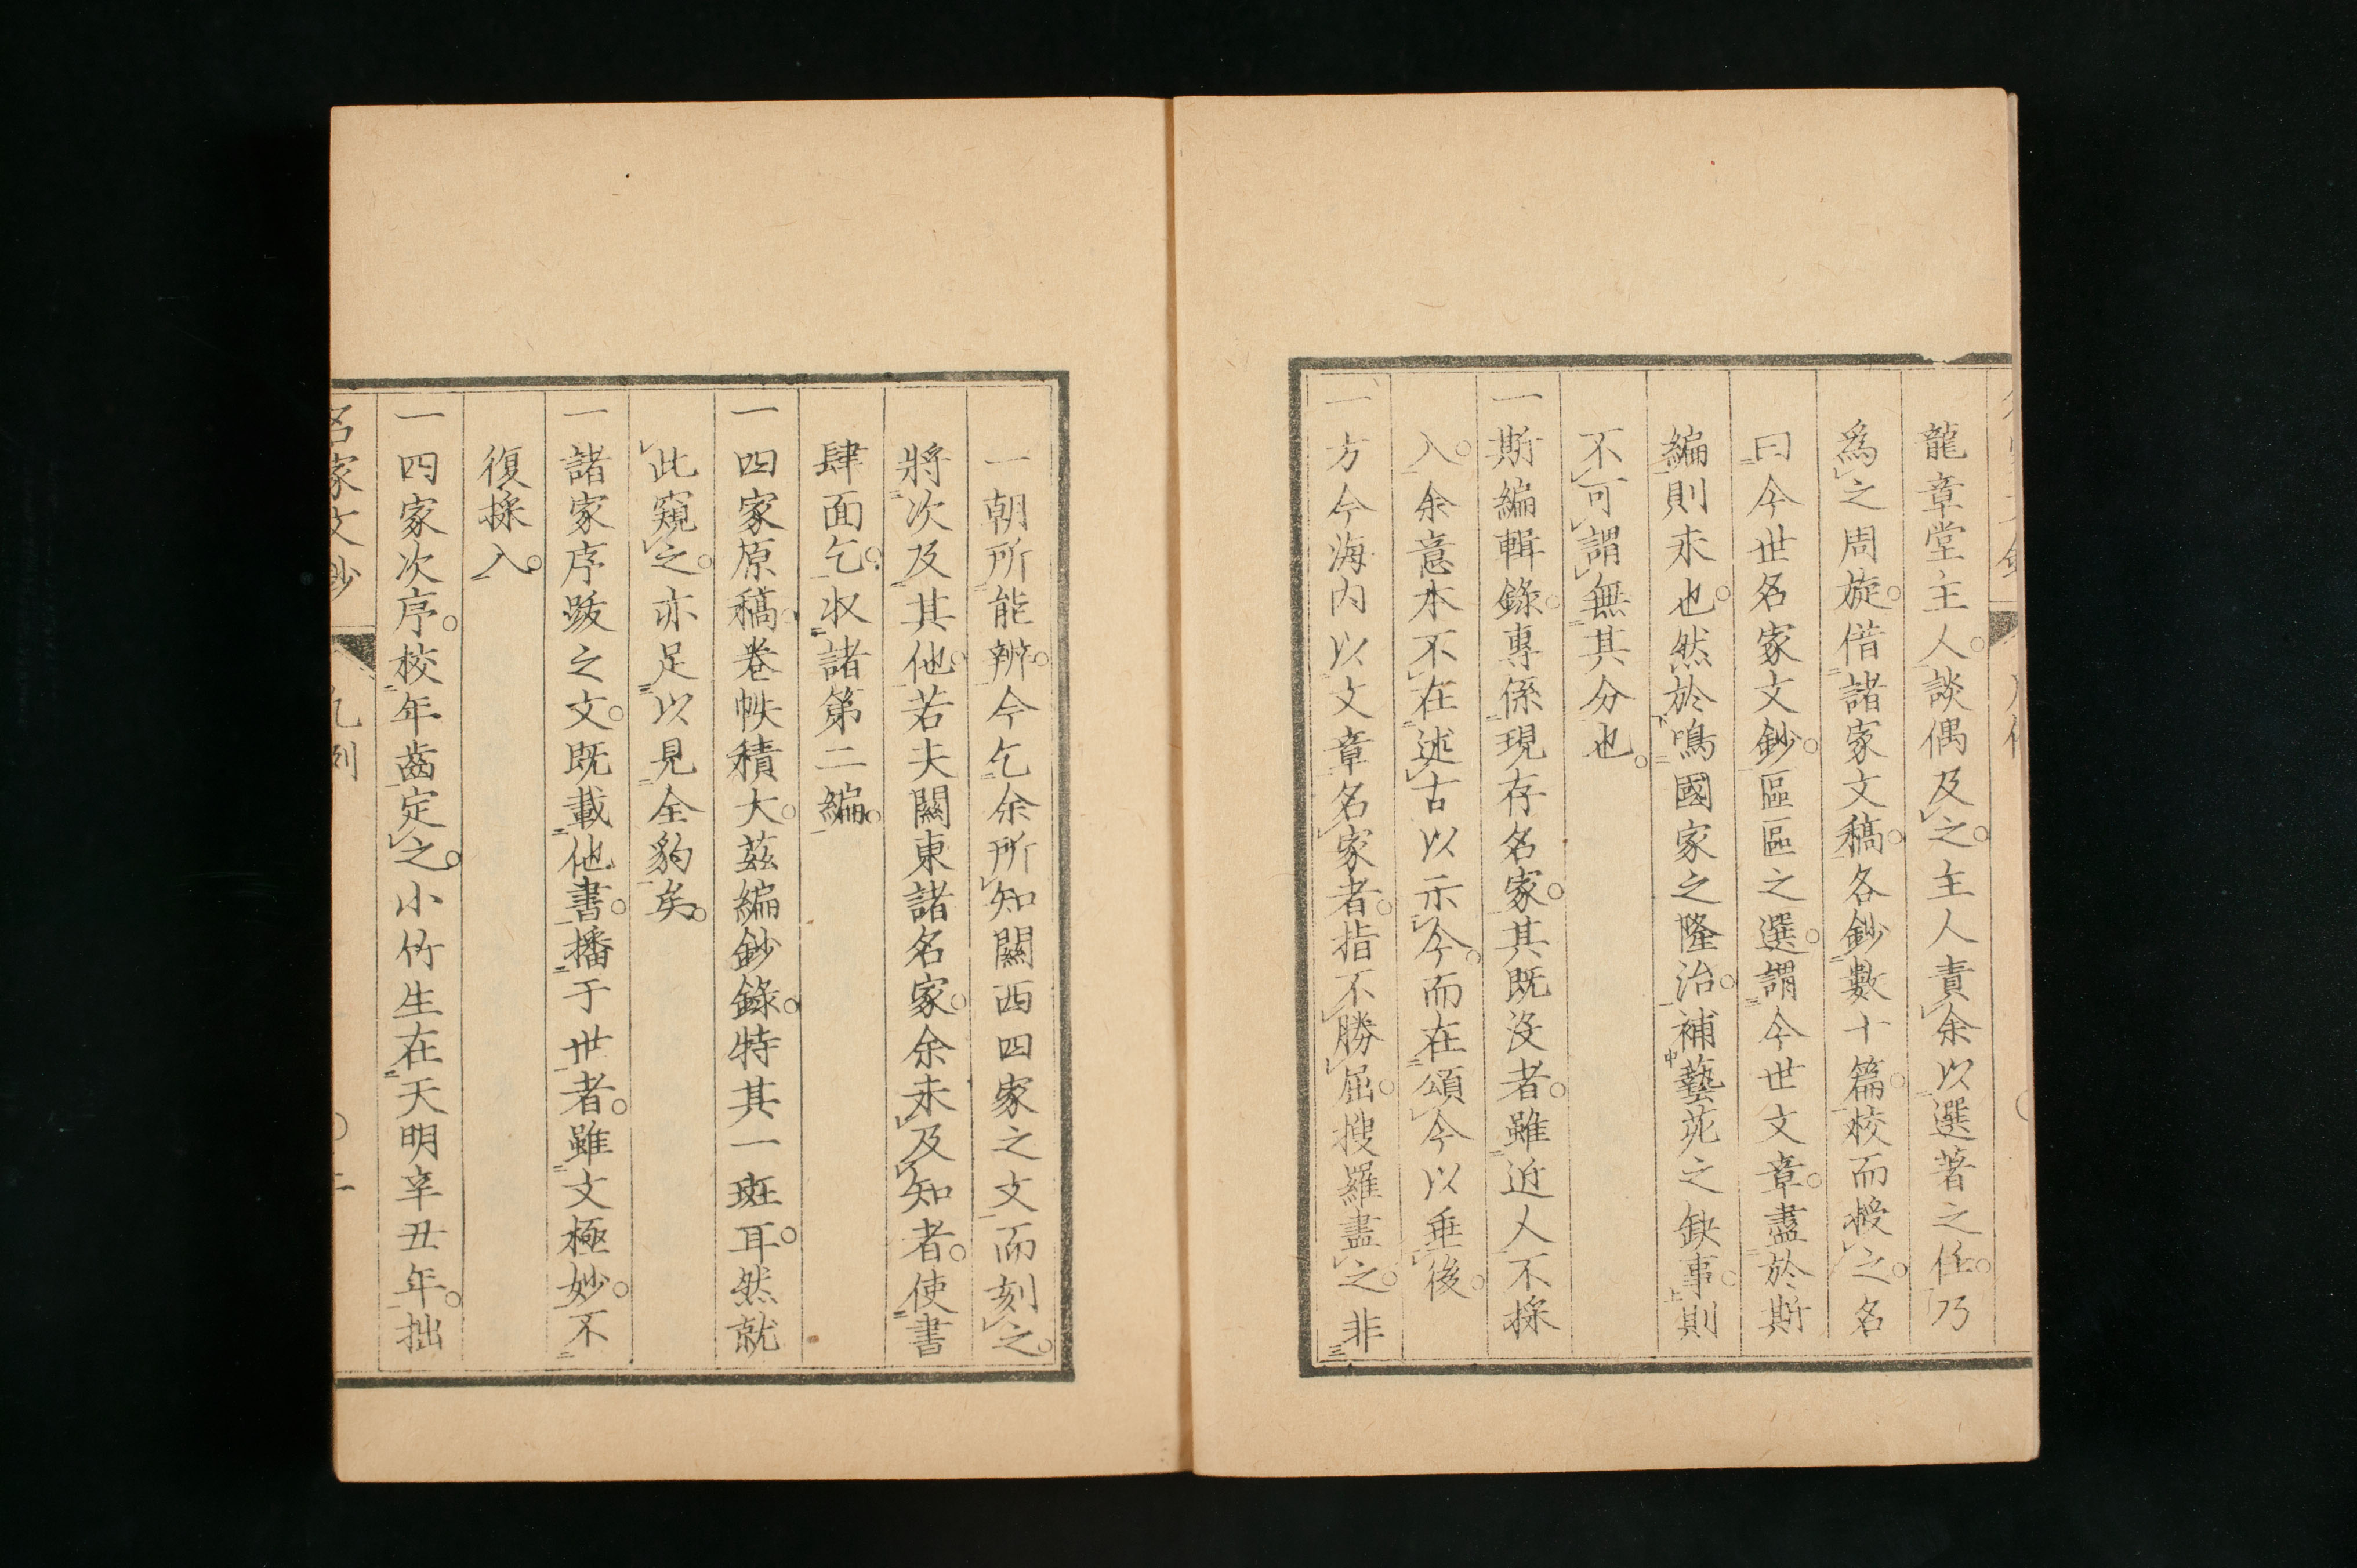 龍章堂主人。談偶及之。主人責余以選著之任。乃
為之周旋。借諸家文稿。各鈔數十篇。校而授之。名
曰今世名家文鈔。區區之選。謂今世文章。盡於斯
編則未也。然於鳴國家之隆治。補藝苑之缺事。則
不可謂無其分也。
一斯編輯錄。專係現存名家。其既沒者。雖近人不採
入。余意本不在述古以示今。而在頌今以垂後。
一方今海內以文章名家者。指不勝屈。搜羅盡之。非
一朝所能辨。今乞余所知關西四家之文而刻之。
將次及其他。若夫關東諸名家。余未及知者。使書
肆面乞。収諸第二編。
一四家原稿。卷帙積大。茲編鈔錄。特其一斑耳。然就
此窺之。亦足以見全豹矣。
一諸家序跋之文。既載他書。播于世者。雖文極妙。不
復採入。
一四家次序。校年齒定之。小竹生在天明辛丑年。拙
名家文鈔 凡例